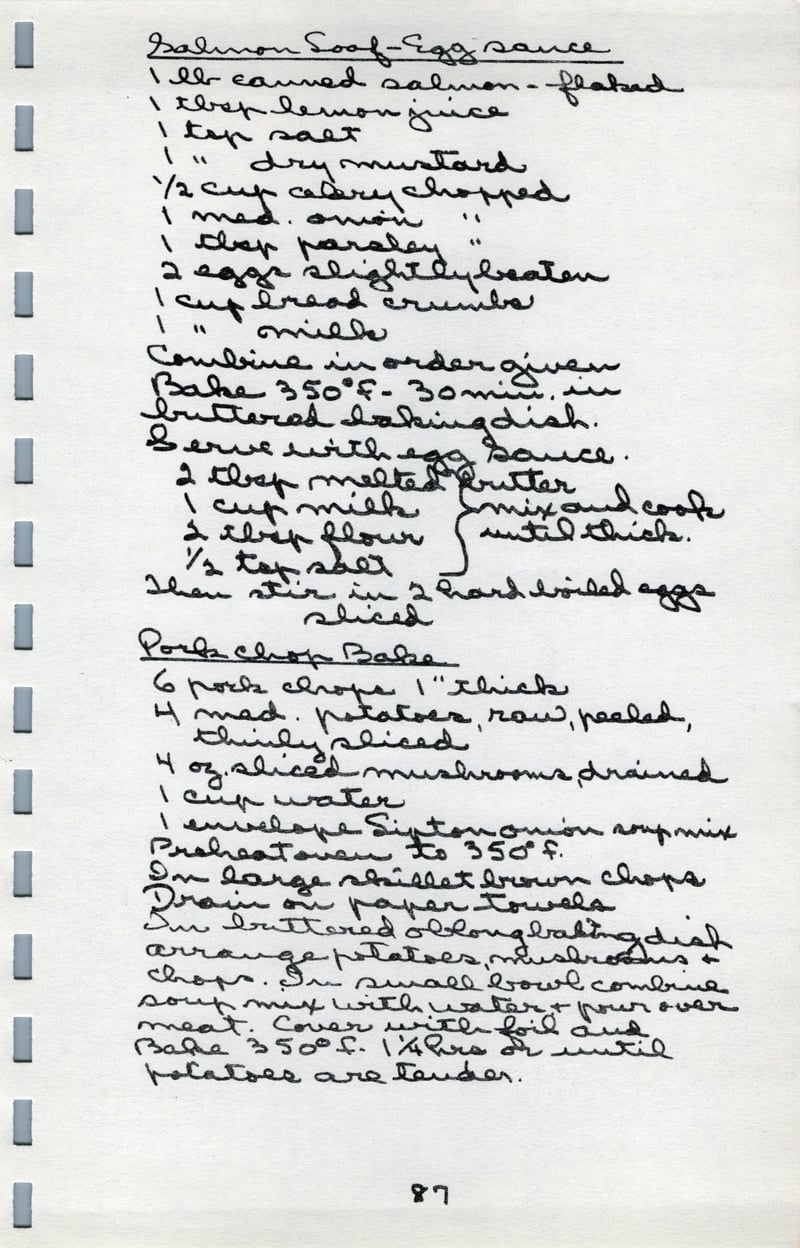 Salmon Loaf - Egg sauce
1 lb canned salmon - flaked
1 tbsp lemon juice
1 tsp salt
1 " dry mustard
1/2 cup celery chopped
1 med. onion "
1 tbsp parsley "
2 eggs slightly beaten
1 cup bread crumbs
1 " milk
Combine in order given
Bake 350°F - 30 min. in
buttered baking dish.
Serve with egg sauce.
2 tbsp melted butter
1 cup milk } mix and cook
2 tbsp flour } until thick.
1/2 tsp salt
Then stir in 2 hard boiled eggs
sliced
Pork Chop Bake
6 pork chops 1" thick
4 med. potatoes, raw, peeled,
thinly sliced
4 oz. sliced mushrooms, drained
1 cup water
1 envelope Lipton onion soup mix
Preheat oven to 350°F.
In large skillet brown chops
Drain on paper towels
In buttered oblong baking dish
arrange potatoes, mushrooms +
chops. In small bowl combine
soup mix with water + pour over
meat. Cover with foil and
Bake 350°F. 1 1/4 hrs or until
potatoes are tender.
87